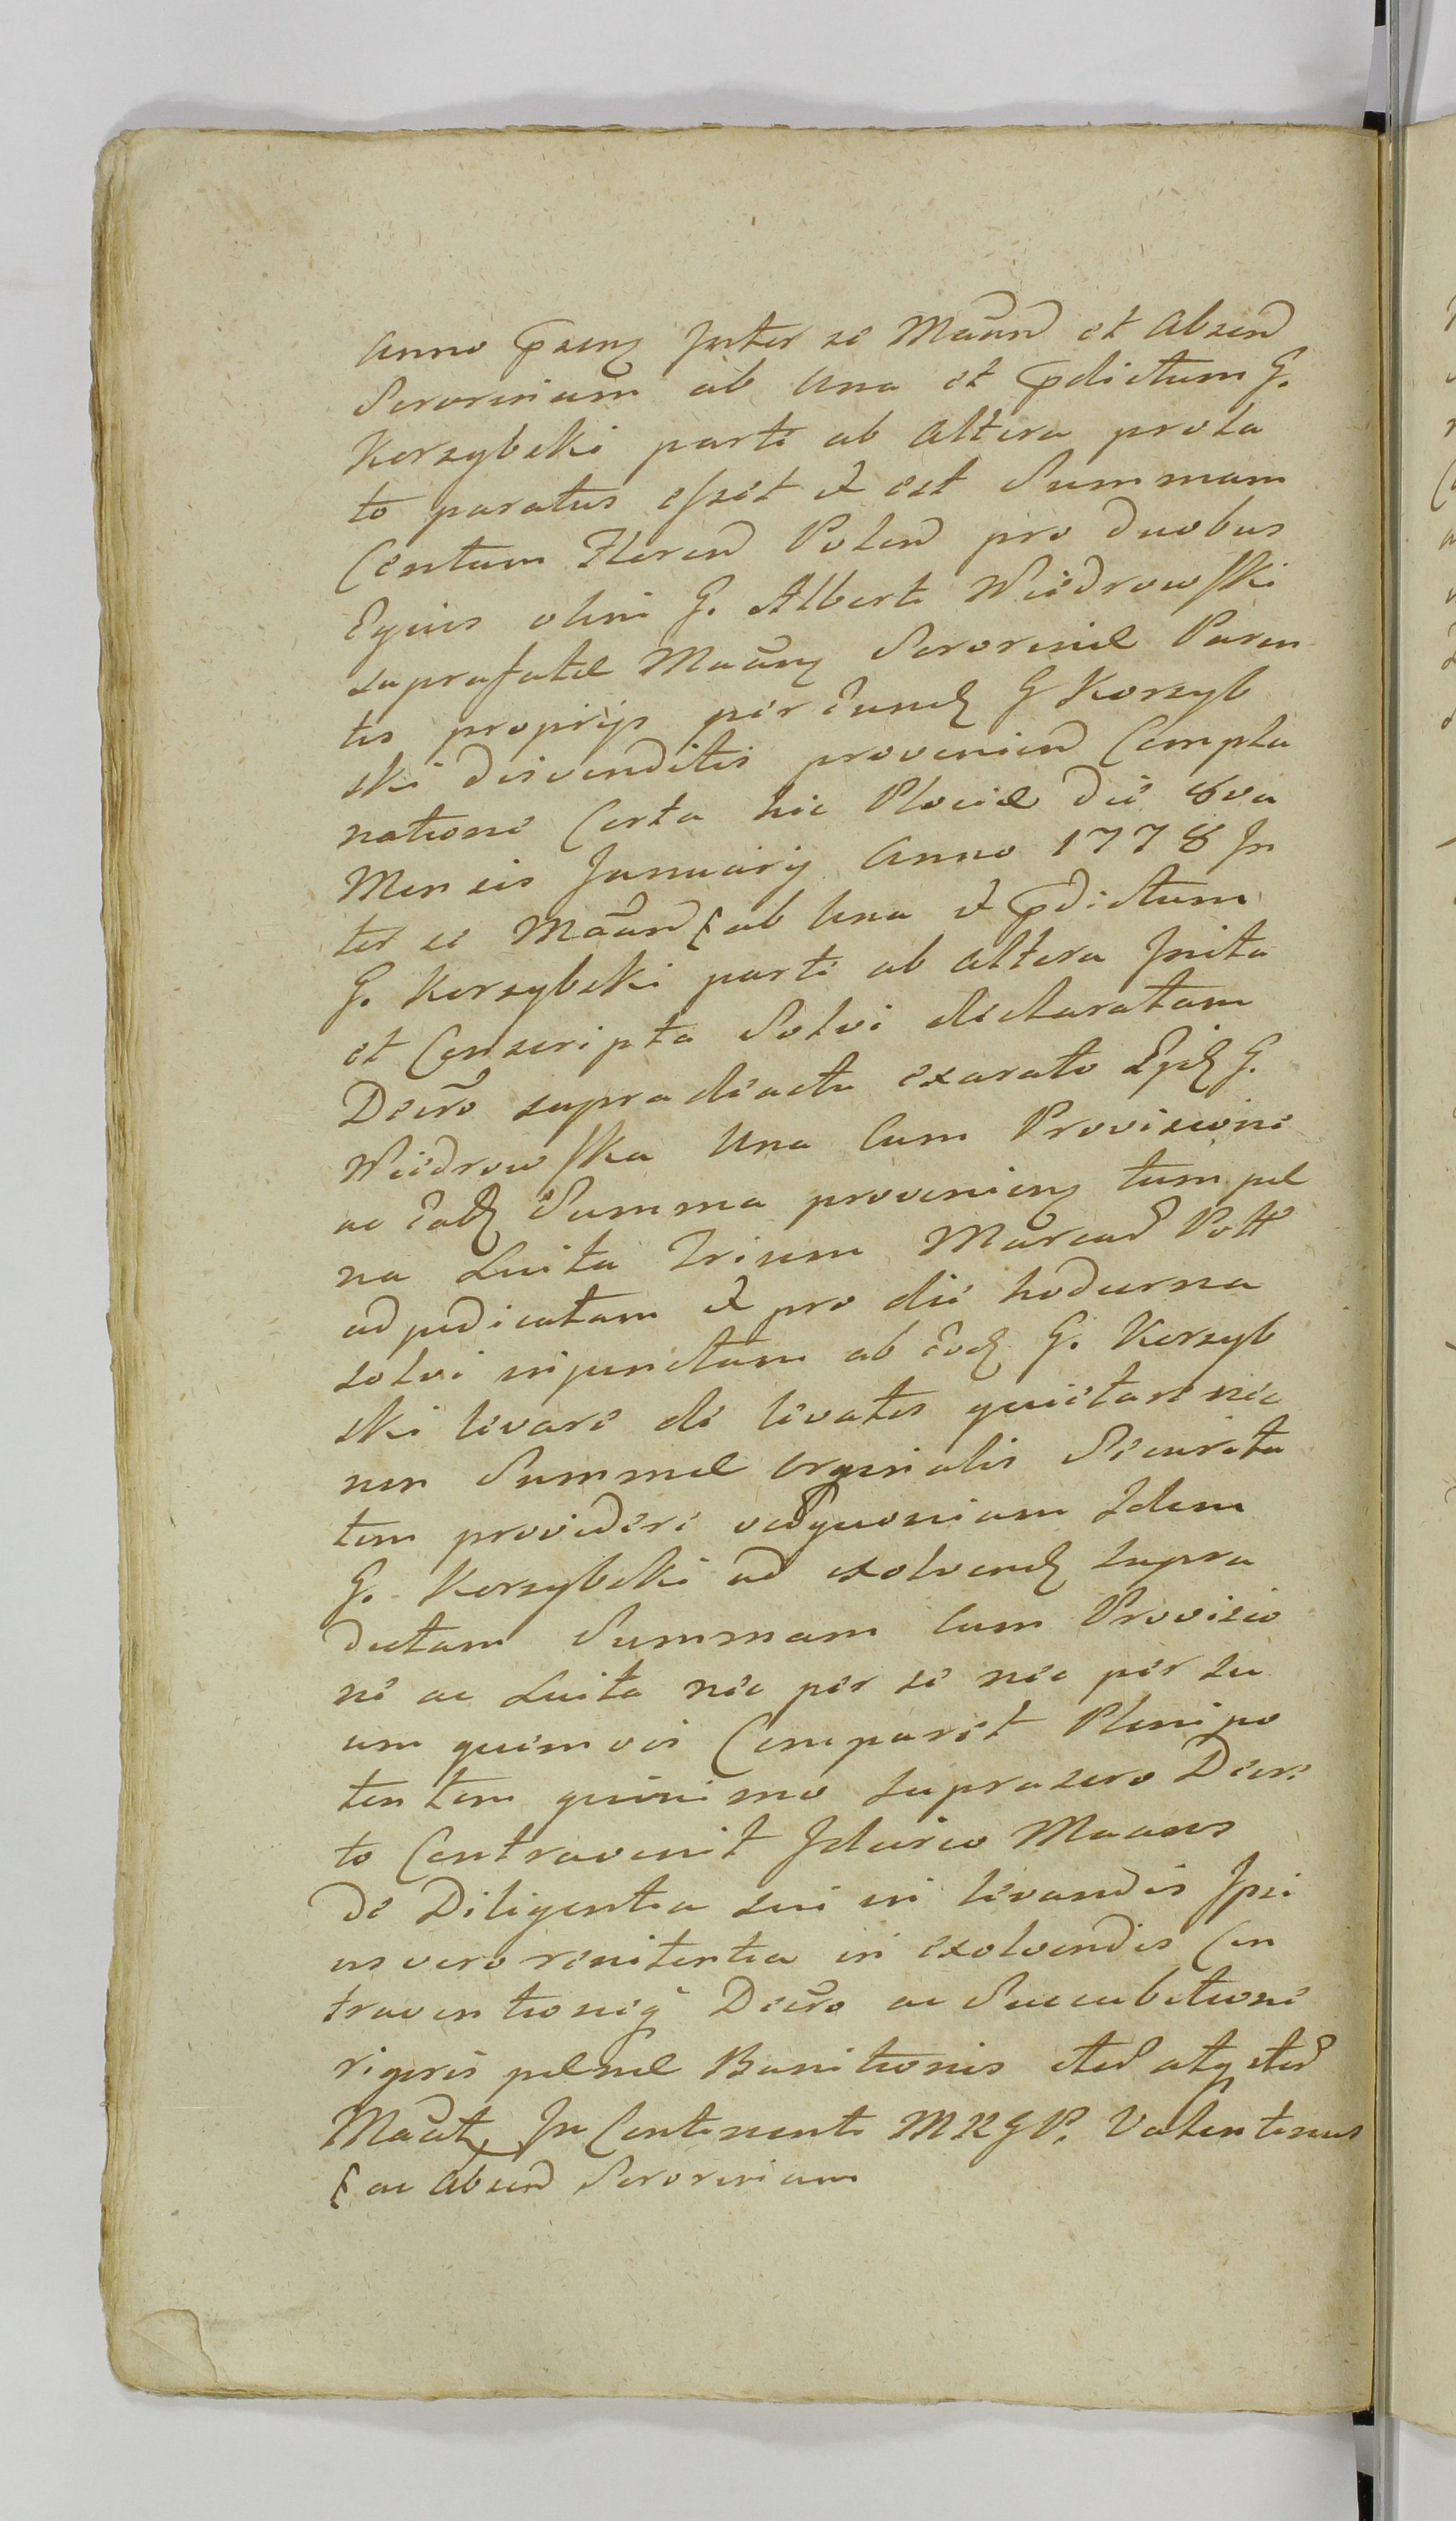 Anno pzeng Inter se Maan̄d et Absend
Sororinam ab una et pdictum G.
Korzybski parte ab altera prola
to paratus esset et est Summam
Centum Floren̄ Polon̄ pro duobus
Equis olim G. Alberti Wiedrowski
suprafatæ Maāng Sororinæ Paren
tis proprijs per eund G Korzyb
ski divenditis provenien̄ Compla
natione Certa hic Plociæ die 8va
Mensis Januarij Anno 1778 In
ter se Maān̄d ab Una et pdictum
G. Korzybski parte ab altera Inita
et Conscripta Solvi declaratam
Decr̄o supra de actu exarato Epd G.
Wiedrowska Una Cum Provisione
ac ead Summa provenieng tum pæ
na Luita Trium Marcar̄ Poll
adjudicatam et pro die hodierna
solvi injunctam ab eod G. Korzyb
ski levare de levatis quietare nec
non Summæ Orginalis Securita
tem providere vedquoniam Idem
G. Korzybski ad exolvend supra
dictam Summam Cum Provisio
ne ac Luita nec per se nec per su
um quemvis Comparet Plenipo
tentem quinimo suprascro Decre
to Contravenit Idcirco Maans
de Diligentia sui in levandis Ipsi
us vero renitentia in exolvendis Con
traventioneq Decr̄o ac Succubitione
rigoris pænæ Banitionis sted atq sted
Maat, In Contenenti MRGP. Valentinus
ac Absend Sororinam